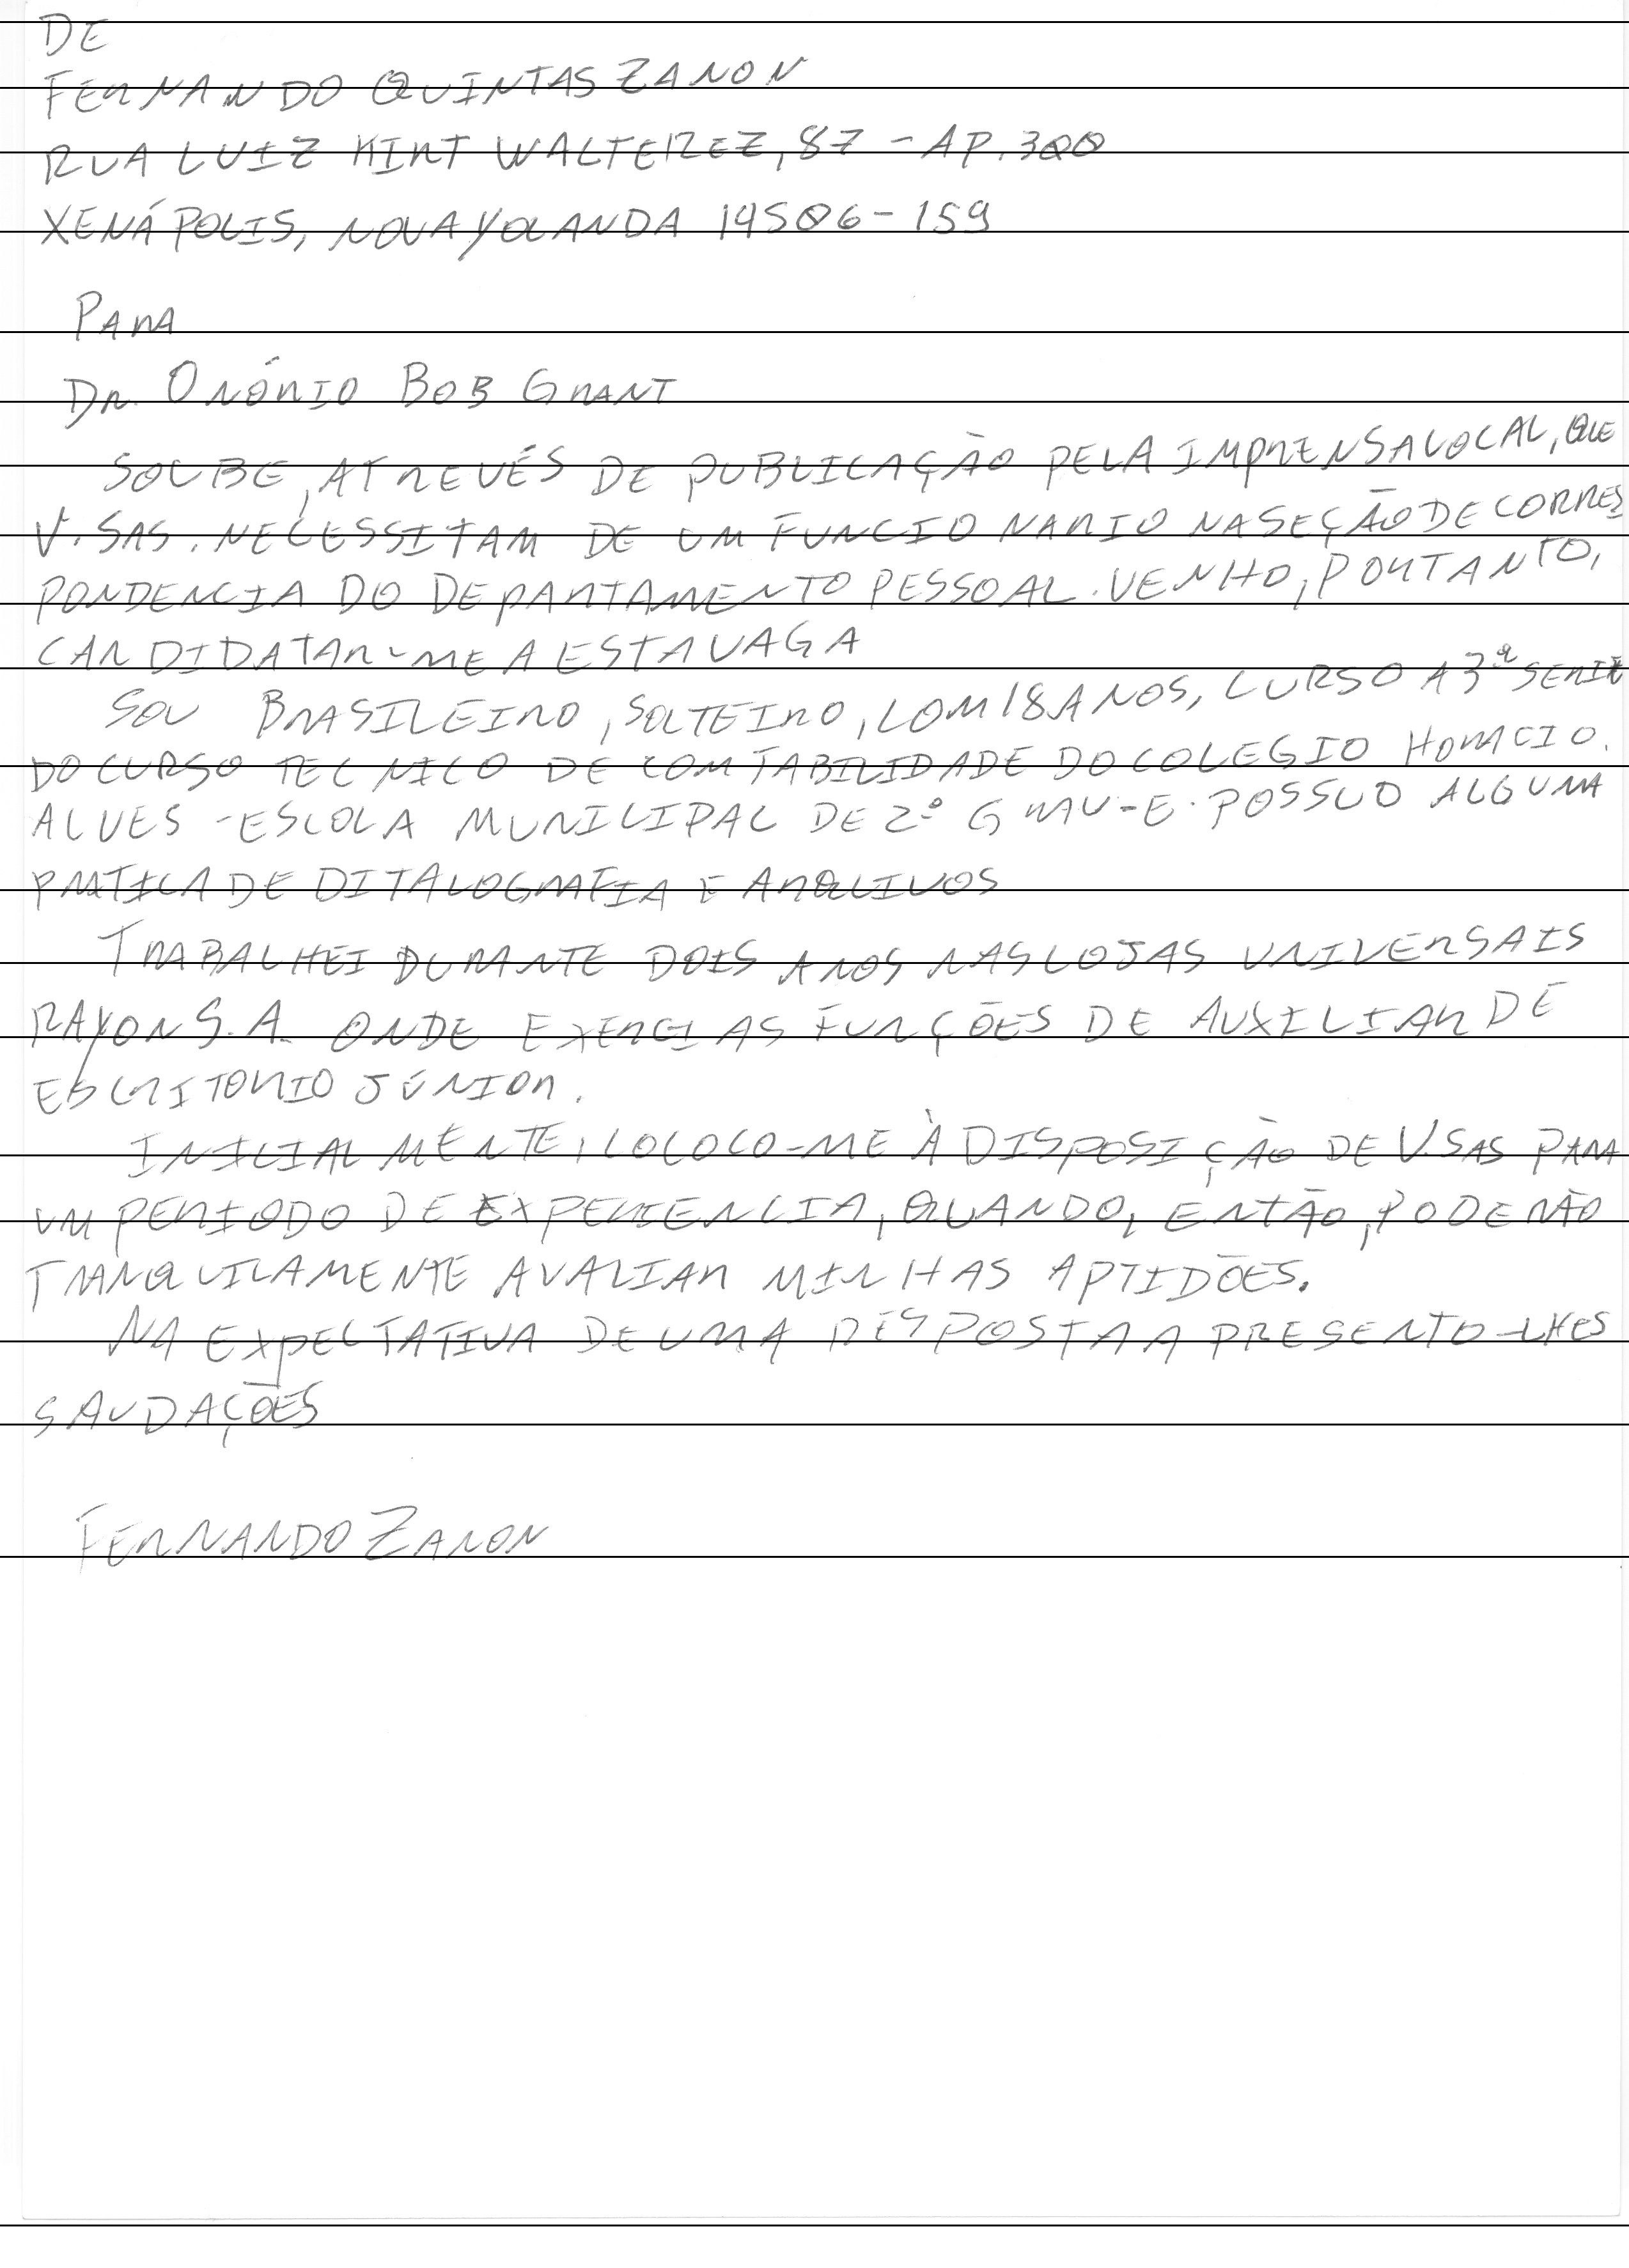 DE
FERNANDO QUINTAS ZANON
RUA LUIZ KIRT WALTEREZ, 87 - AP. 300
XENÁPOLIS, NOVA YOLANDA 19506-159
PARA
DR. ONÓRIO BOB GRANT
SOUBE, ATREVÉS DE PUBLICAÇÃO PELA IMPRENSA LOCAL, QUE
V. SAS. NECESSITAM DE UM FUNCIONARIO NA SEÇÃO DE CORRES
PONDENCIA DO DEPARTAMENTO PESSOAL. VENHO, PORTANTO,
CANDIDATAR-ME A ESTA VAGA
SOU BRASILEIRO, SOLTEIRO, COM 18 ANOS, CURSO A 3ª SERIE
DO CURSO TECNICO DE COMTABILIDADE DO COLEGIO HORACIO
ALVES - ESCOLA MUNICIPAL DE 2º GRAU - E. POSSUO ALGUMA
PRATICA DE DITALOGRAFIA E ARQUIVOS
TRABALHEI DURANTE DOIS ANOS NAS LOJAS UNIVERSAIS
RAYON S.A. ONDE EXERCI AS FUNÇÕES DE AUXILIAR DE
ESCRITORIO JÚNIOR.
INICIALMENTE, COLOCO-ME À DISPOSIÇÃO DE V.SAS PARA
UM PERIODO DE EXPERIENCIA, QUANDO, ENTÃO, PODERÃO
TRANQUILAMENTE AVALIAR MINHAS APTIDÕES.
NA EXPECTATIVA DE UMA RESPOSTA APRESENTO-LHES
SAUDAÇÕES
FERNANDO ZANON